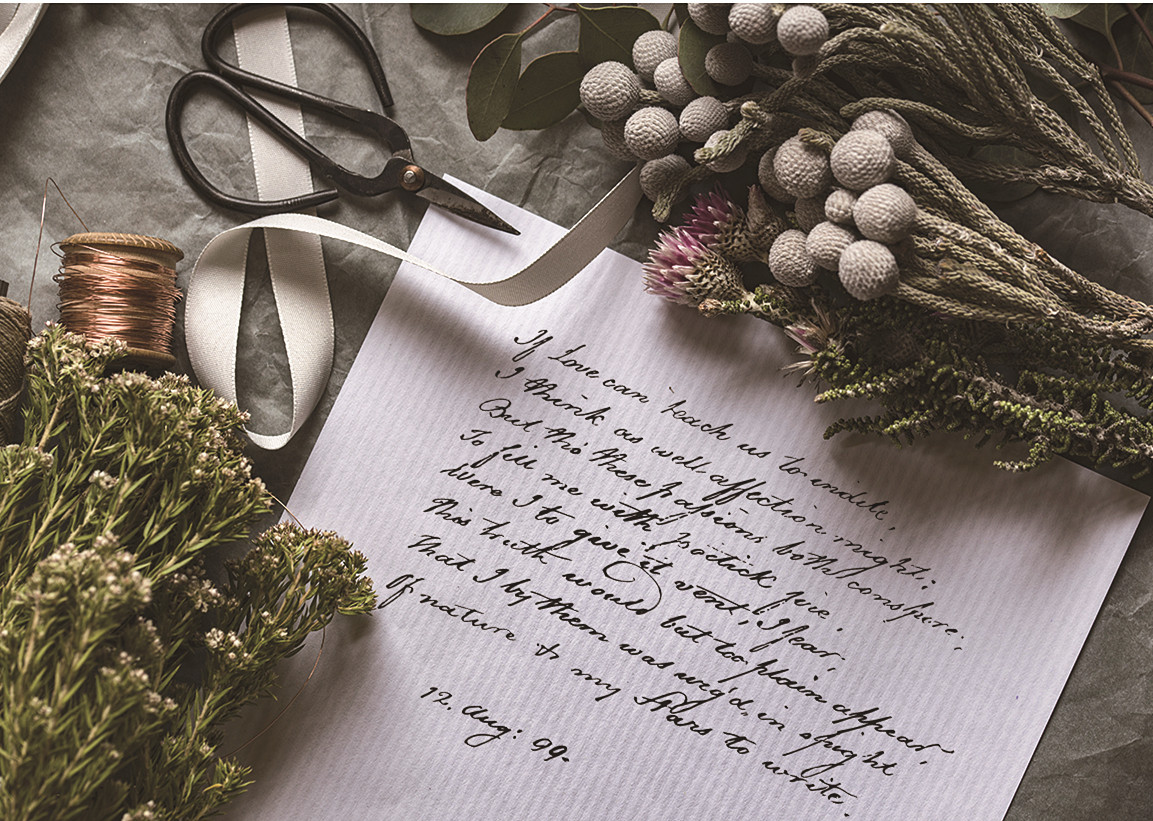 If Love can teach us to indite,
I think as well affection might;
But tho these passions both conspire,
To fill me with poetick fire,
Were I to give it vent, I fear,
This truth would but too plain appear,
That I by them was urg'd, in spight
Of nature & my stars to write.
12. Aug: 99.